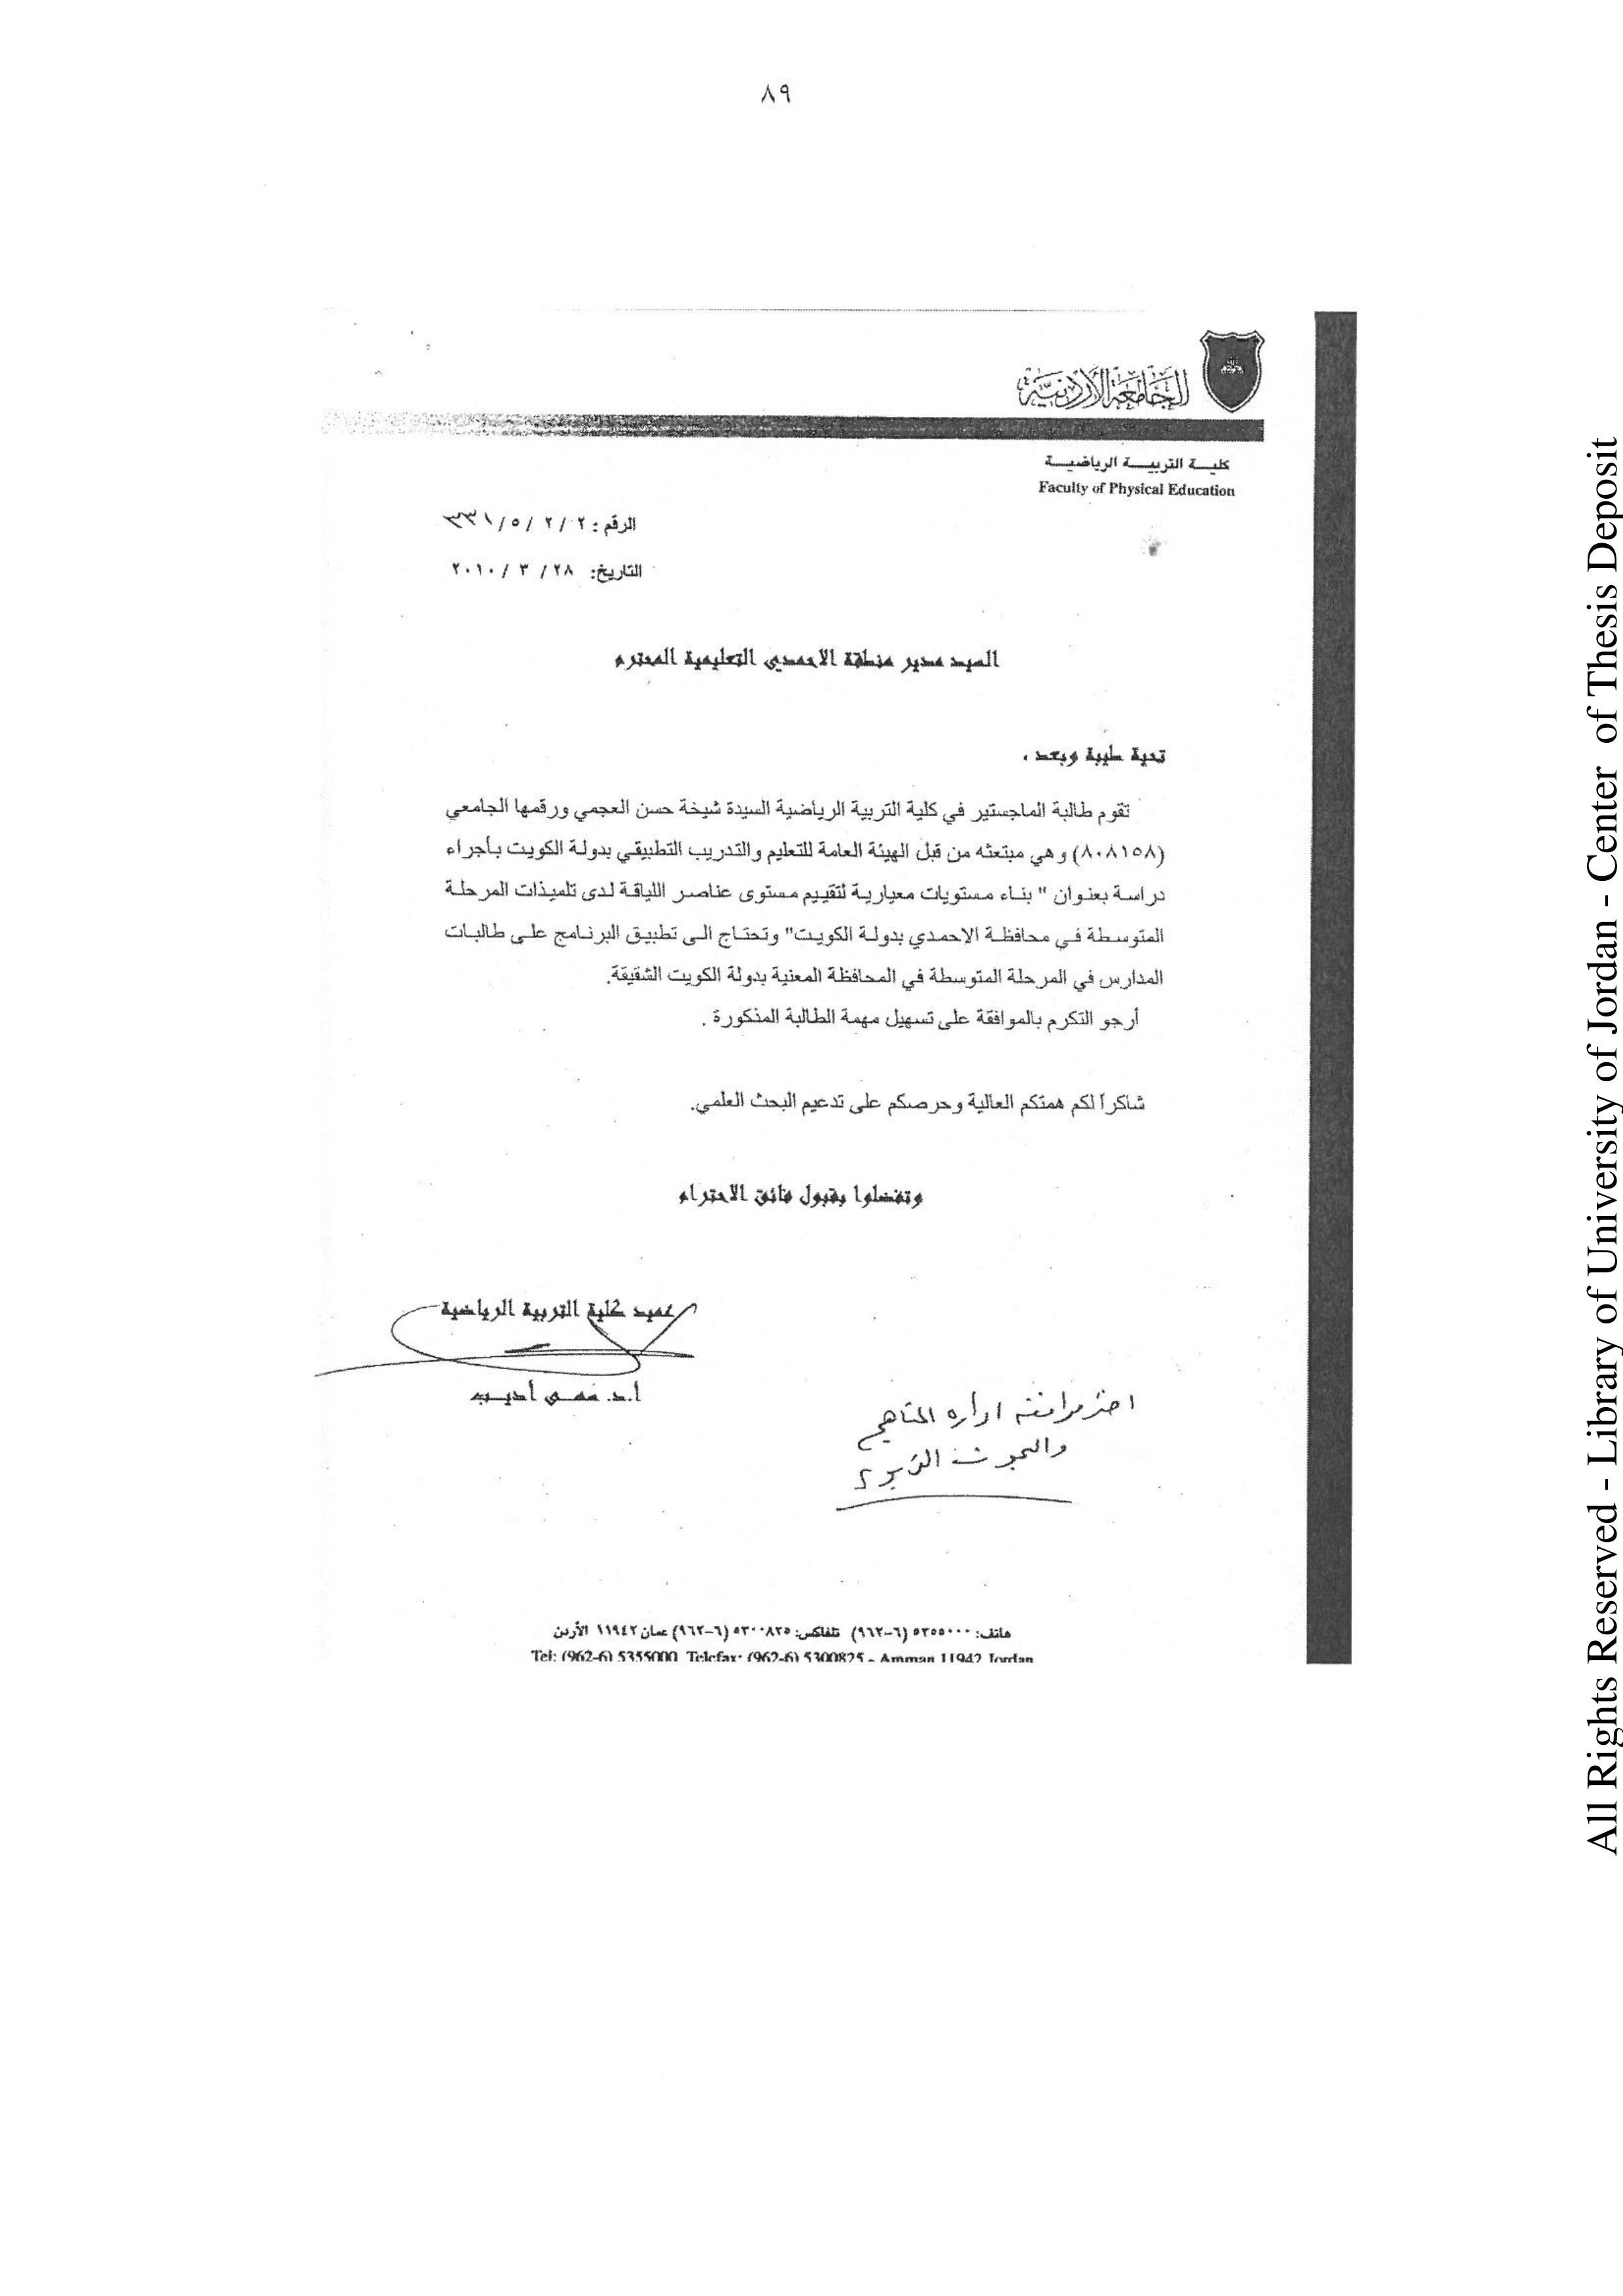 ٨٩
الجامعة الأردنية
كليـــة التربيـــة الرياضيـــة
Faculty of Physical Education
الرقم : ٢ / ٢ / ٥ / ٣٣١
التاريخ: ٢٨ / ٣ / ٢٠١٠
السيد مدير منطقة الاحمدي التعليمية المحترم
تحية طيبة وبعد ،
تقوم طالبة الماجستير في كلية التربية الرياضية السيدة شيخة حسن العجمي ورقمها الجامعي
(٨٠٨١٥٨) وهي مبتعثه من قبل الهيئة العامة للتعليم والتدريب التطبيقي بدولة الكويت بأجراء
دراسة بعنوان " بناء مستويات معيارية لتقييم مستوى عناصر اللياقة لدى تلميذات المرحلة
المتوسطة في محافظة الاحمدي بدولة الكويت" وتحتاج الى تطبيق البرنامج على طالبات
المدارس في المرحلة المتوسطة في المحافظة المعنية بدولة الكويت الشقيقة.
أرجو التكرم بالموافقة على تسهيل مهمة الطالبة المذكورة .
شاكراً لكم همتكم العالية وحرصكم على تدعيم البحث العلمي.
وتفضلوا بقبول فائق الاحترام
عميد كلية التربية الرياضية
أ.د. أديب
موافقة اداره المناهج
والبحوث التربوية
هاتف: ٥٣٥٥٠٠٠ (٦-٩٦٢) تلفاكس: ٥٣٠٠٨٢٥ (٦-٩٦٢) عمان ١١٩٤٢ الأردن
Tel: (962-6) 5355000 Telefax: (962-6) 5300825 - Amman 11942 Jordan
All Rights Reserved - Library of University of Jordan - Center of Thesis Deposit